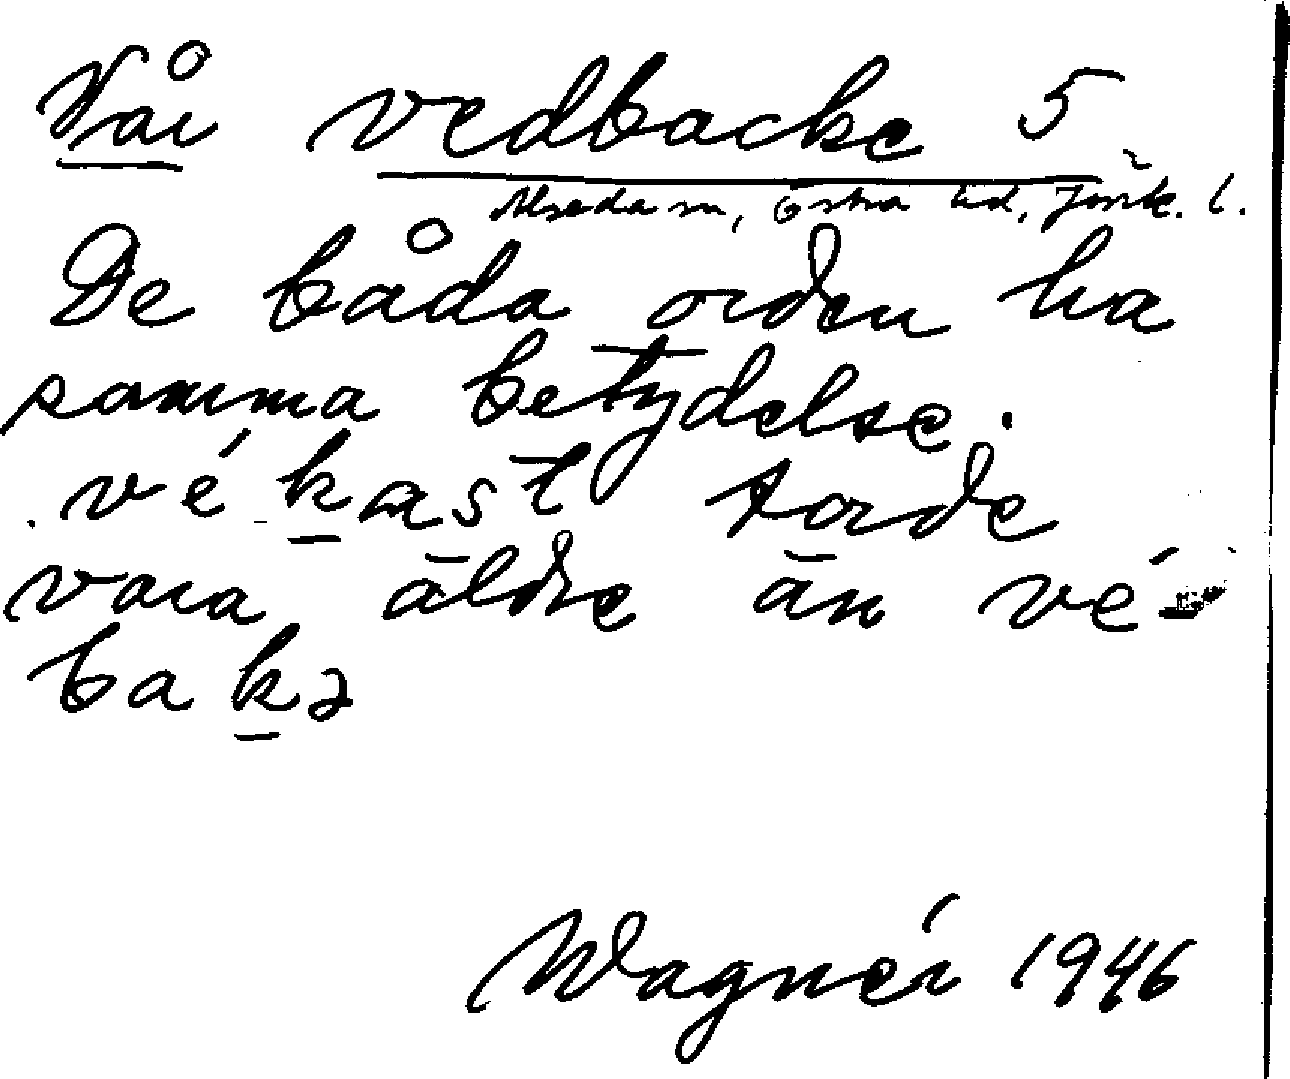 Vår vedbacke 5
Alseda sn, Östra hd, Jönk. l.
De båda orden ha
samma betydelse.
vékast torde
vara äldre än vé-
bakə
Wagnér 1946